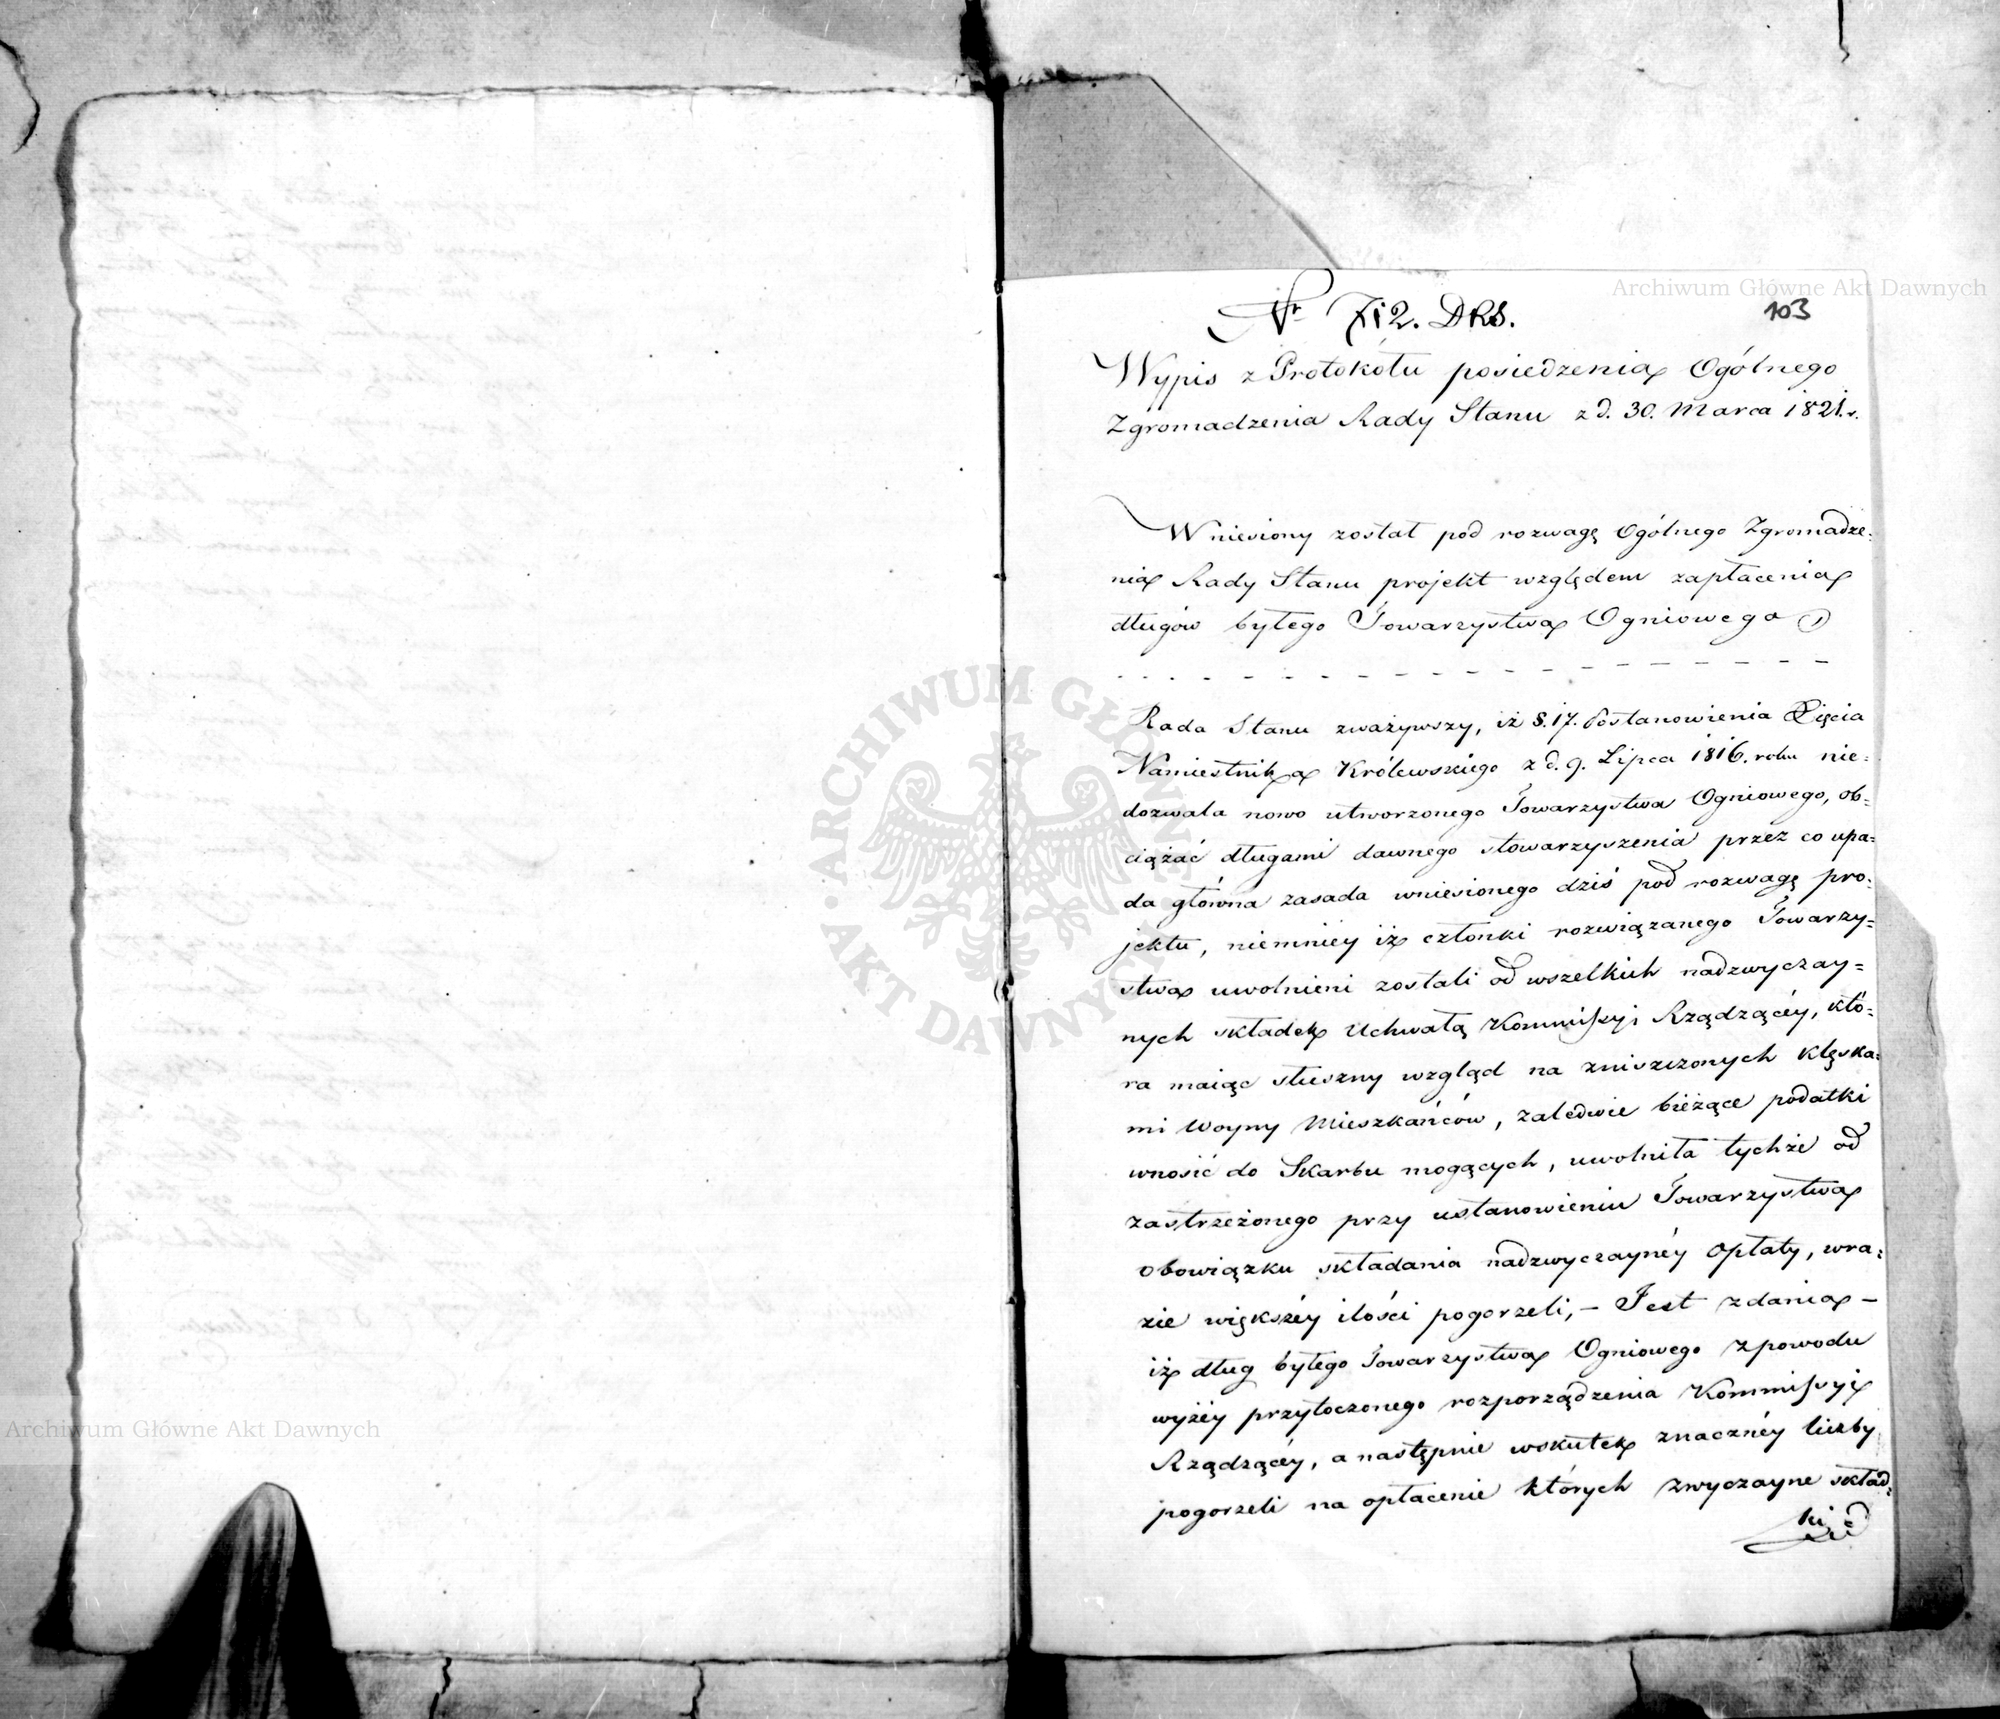 Nr 712. DRS.
103
Wypis z Protokółu posiedzenia Ogólnego
Zgromadzenia Rady Stanu z d. 30. Marca 1821. r.
Wniesiony został pod rozwagę Ogólnego Zgromadze-
nia Rady Stanu projekt względem zapłacenia
długów byłego Towarzystwa Ogniowego
Rada Stanu zważywszy, iż §. 17. Postanowienia Xięcia
Namiestnika Królewskiego z d. 9. Lipca 1816. roku nie-
dozwala nowo utworzonego Towarzystwa Ogniowego, ob-
ciążać długami dawnego stowarzyszenia przez co upa-
da główna zasada wniesionego dziś pod rozwagę pro-
jektu, niemniey iż członki rozwiązanego Towarzy-
stwa uwolnieni zostali od wszelkich nadzwyczay-
nych składek Uchwałą Kommissyi Rządzącéy, któ-
ra maiąc słuszny wzgląd na zniszczonych klęska-
mi Woyny Mieszkańców, zaledwie bieżące podatki
wnosić do Skarbu mogących, uwolniła tychże od
zastrzeżonego przy ustanowieniu Towarzystwa
obowiązku składania nadzwyczaynéy opłaty, wra-
zie większéy ilości pogorzeli, – Jest zdania –
iż dług byłego Towarzystwa Ogniowego z powodu
wyżéy przytoczonego rozporządzenia Kommissyi
Rządzącéy, a następnie wskutek znacznéy liczby
pogorzeli na opłacenie których zwyczayne skład-
ki
Archiwum Główne Akt Dawnych
Archiwum Główne Akt Dawnych
ARCHIWUM GŁÓWNE AKT DAWNYCH